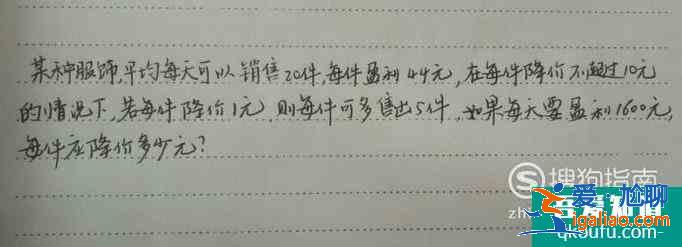 某种服饰,平均每天可以销售20件,每件盈利44元,在每件降价不超过10元
的情况下,若每件降价1元,则每件可多售出5件,如果每天要盈利1600元,
每件应降价多少元?
搜狗指南
zh
爱尬聊
igaliao.com
qkoufu.com